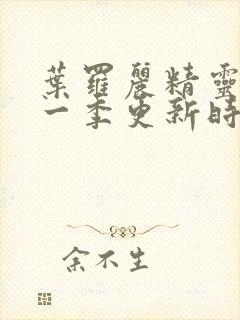 葉羅麗精靈
一季更新時
余不生